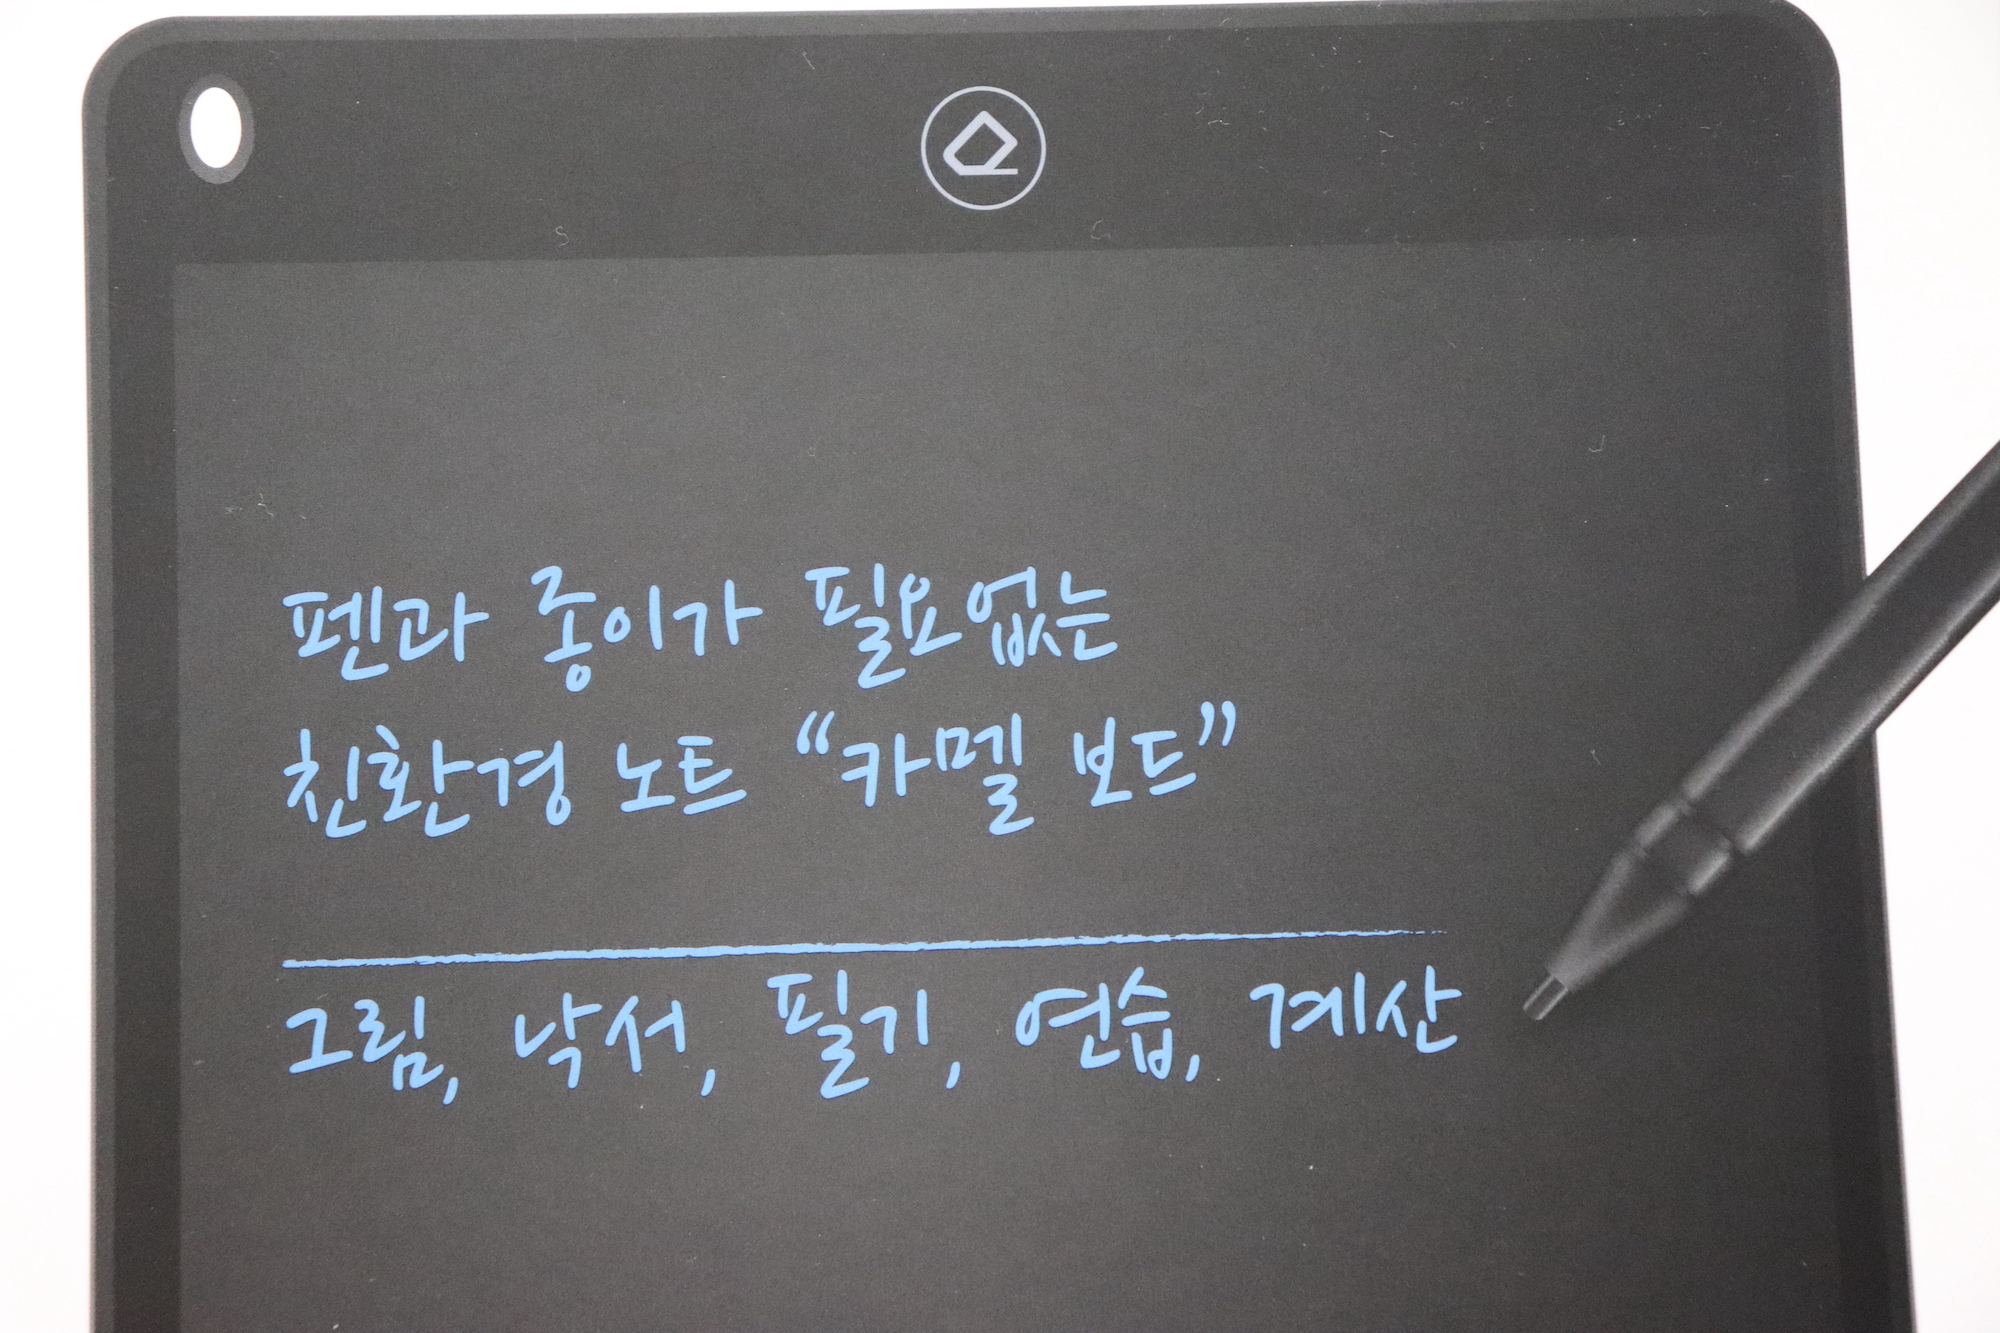 펜과 종이가 필요없는
친환경 노트 “카멜 보드”
그림, 낙서, 필기, 연습, 계산